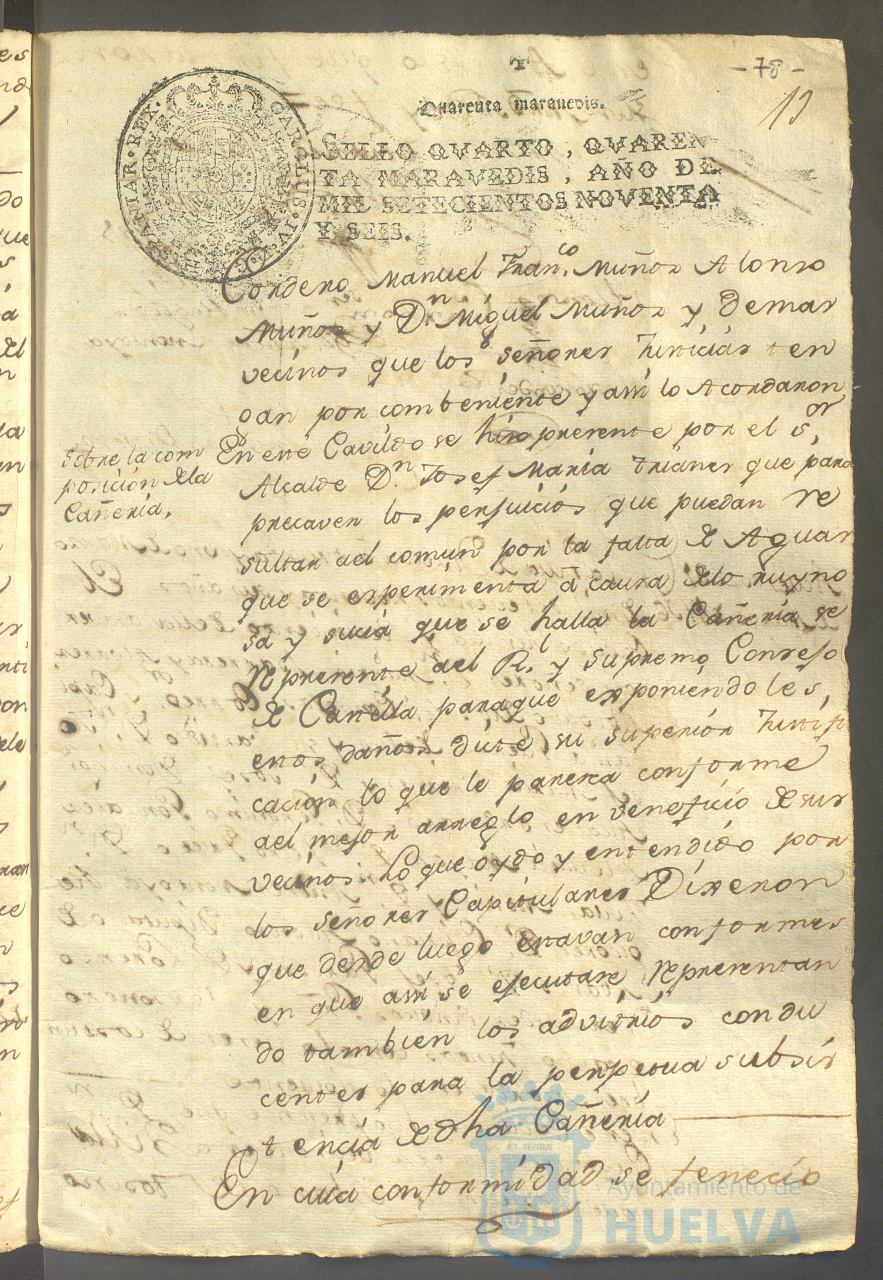 - 78 -
13
Quarenta maravedis.
HISPANIAR. REX. CAROLUS. IV. D. G.
SELLO QVARTO, QVAREN
TA MARAVEDIS, AÑO DE
MIL SETECIENTOS NOVENTA
Y SEIS.
Cordero Manuel Fran.co Muñoz Alonso
Muñoz y Dn Miguel Muñoz y demas
vecinos que los señores Justicias ten
gan por combeniente y assi lo Acordaron
sobre la com
posicion de la
Cañeria.
En este Cavildo se hizo presente por el sor,
Alcalde Dn Josef Maria Trianes que para
precaver los perjuicios que puedan re
sultar del comun por la falta de Aguas
que se experimenta a causa de lo ruyno
sa y sucia que se halla la Cañeria se
represente al Rl y supremo Consejo
de Castilla para que exponiendoles,
estos daños dicte su superior Justifi
cación lo que le paresca conforme
al mejor arreglo en veneficio de sus
vecinos Lo que oydo y entendido por
los señores Capitulares Dixeron
que desde luego estavan conformes
en que assi se ejecutase representan
do también los advitrios condu
centes para la perpetua subsis
tencia de dha Cañeria
En cuia conformidad se fenecio
Ayuntamiento de
HUELVA